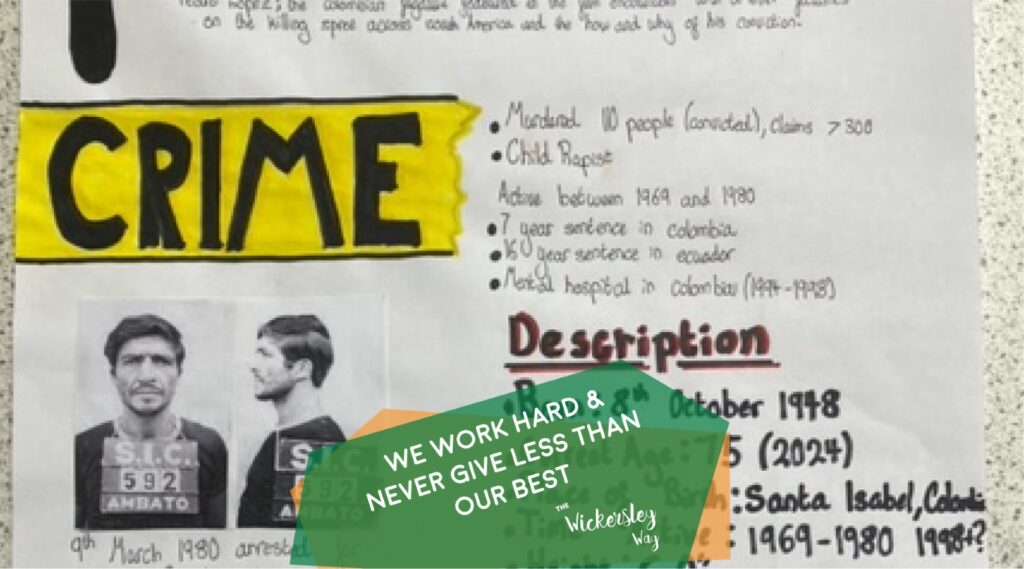 on the killing spree across South America and the how and why of his conviction.
CRIME
• Murdered 110 people (convicted), claims > 300
• Child Rapist
Active between 1969 and 1980
• 7 year sentence in colombia
• 16 year sentence in ecuador
• Mental hospital in colombia (1994-1998)
Description
8th October 1948
Age: 75 (2024)
of Birth: Santa Isabel, Colombia
: 1969-1980 1998+?
S.I.C.
592
AMBATO
S.I.C.
592
AMBATO
9th March 1980 arrested for
WE WORK HARD &
NEVER GIVE LESS THAN
OUR BEST
THE
Wickersley
Way